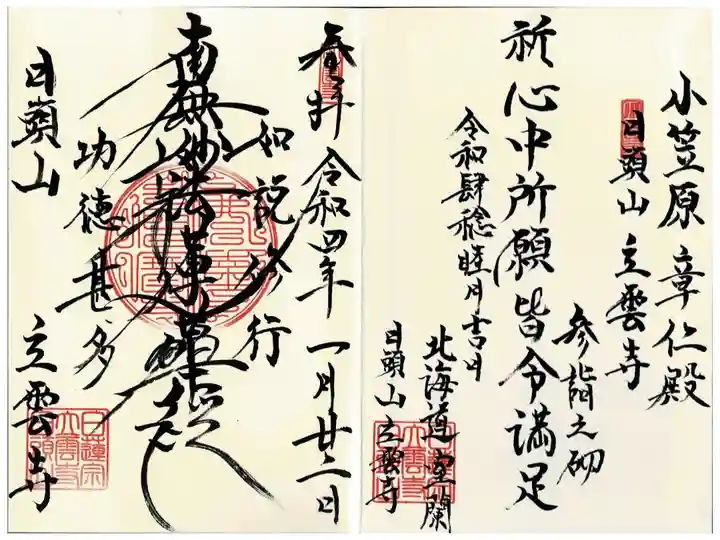 小笠原 章仁殿
日頭山 立雲寺
参詣之砌
祈心中所願皆令満足
令和肆稔睦月吉日
北海道室蘭
日頭山 立雲寺
奉拝 令和四年 一月廿二日
如説修行
南無妙法蓮華経
功徳甚多
日頭山 立雲寺
日蓮宗